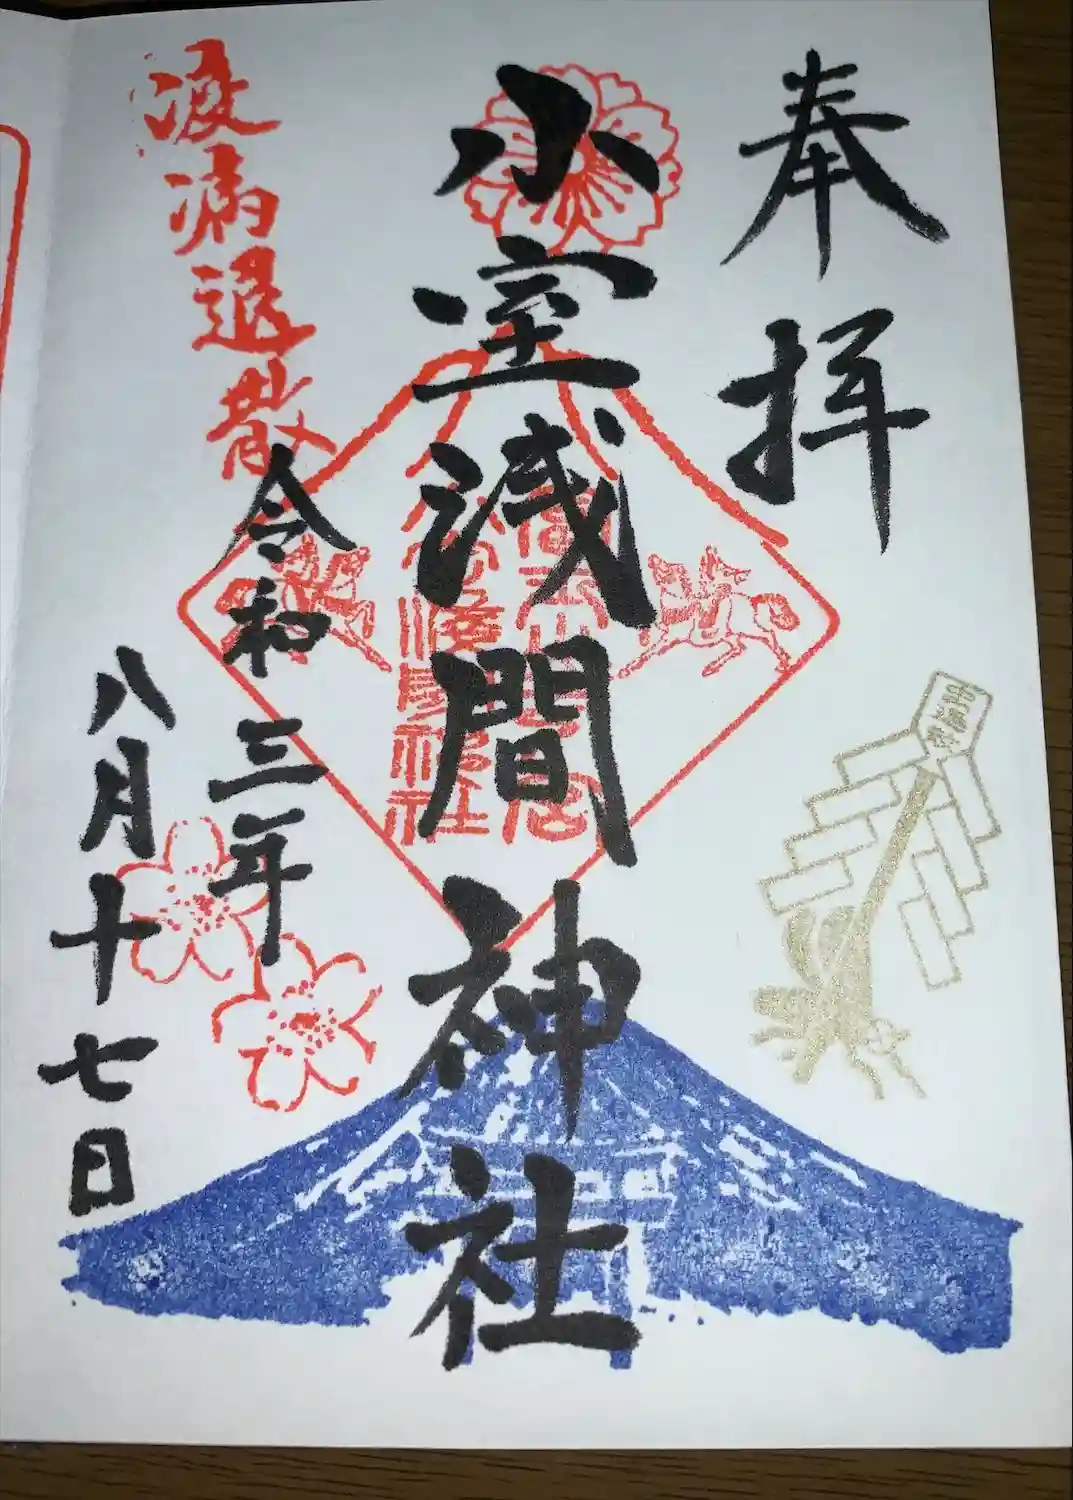 奉拝
小室浅間神社
疫病退散
令和三年
八月十七日
冨士山下宮
小室浅間神社